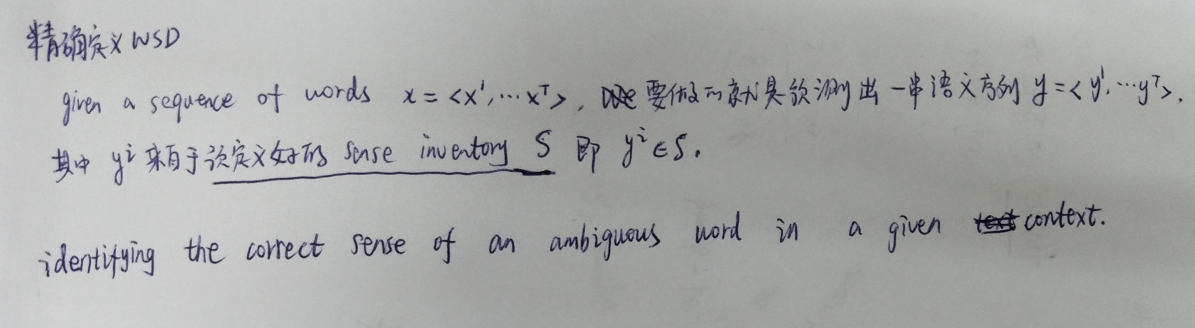 精确定义 WSD
given a sequence of words x = <x¹, ⋯ xᵀ>, 要做的就是预测出一串语义序列 y = <y¹, ⋯ yᵀ>,
其中 yⁱ 来自于预定义好的 sense inventory S 即 yⁱ ∈ S.
identifying the correct sense of an ambiguous word in a given context.